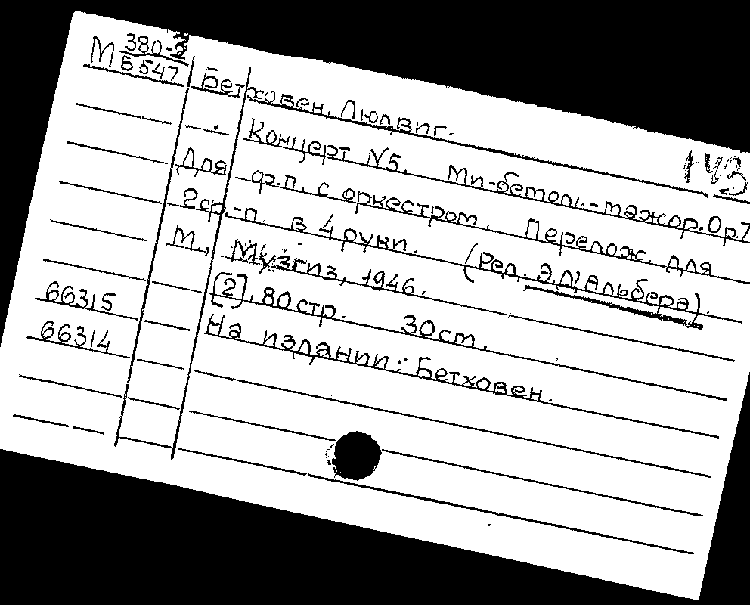 М 380-2
Б 547
Бетховен, Людвиг.
143
Концерт №5. Ми-бемоль-мажор. Ор7
Для ф.п. с оркестром. Перелож. для
2ф.-п. в 4 руки. (Ред. Э. Д'Альбера).
М., Музгиз, 1946.
[2], 80 стр. 30 см.
На издании: Бетховен.
66315
66314